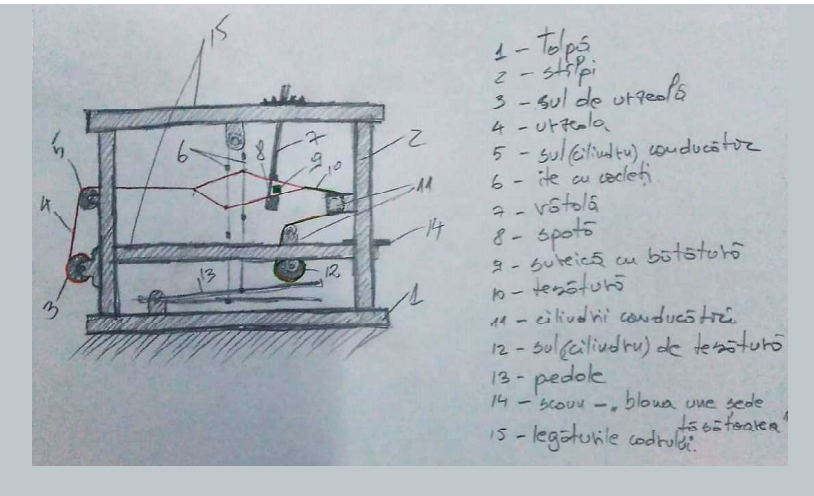 15
6
7
8
9
10
2
5
4
11
14
13
12
3
1
1 - Tolpă
2 - stîlpi
3 - sul de urzeală
4 - urzeala
5 - sul (cilindru) conducător
6 - ite cu cocleți
7 - vătală
8 - spată
9 - suveică cu bătătură
10 - tesătură
11 - cilindrii conducători
12 - sul (cilindru) de tesătură
13 - pedale
14 - scaun - "blana" une șede
tăsătoarea"
15 - legăturile cadrului.